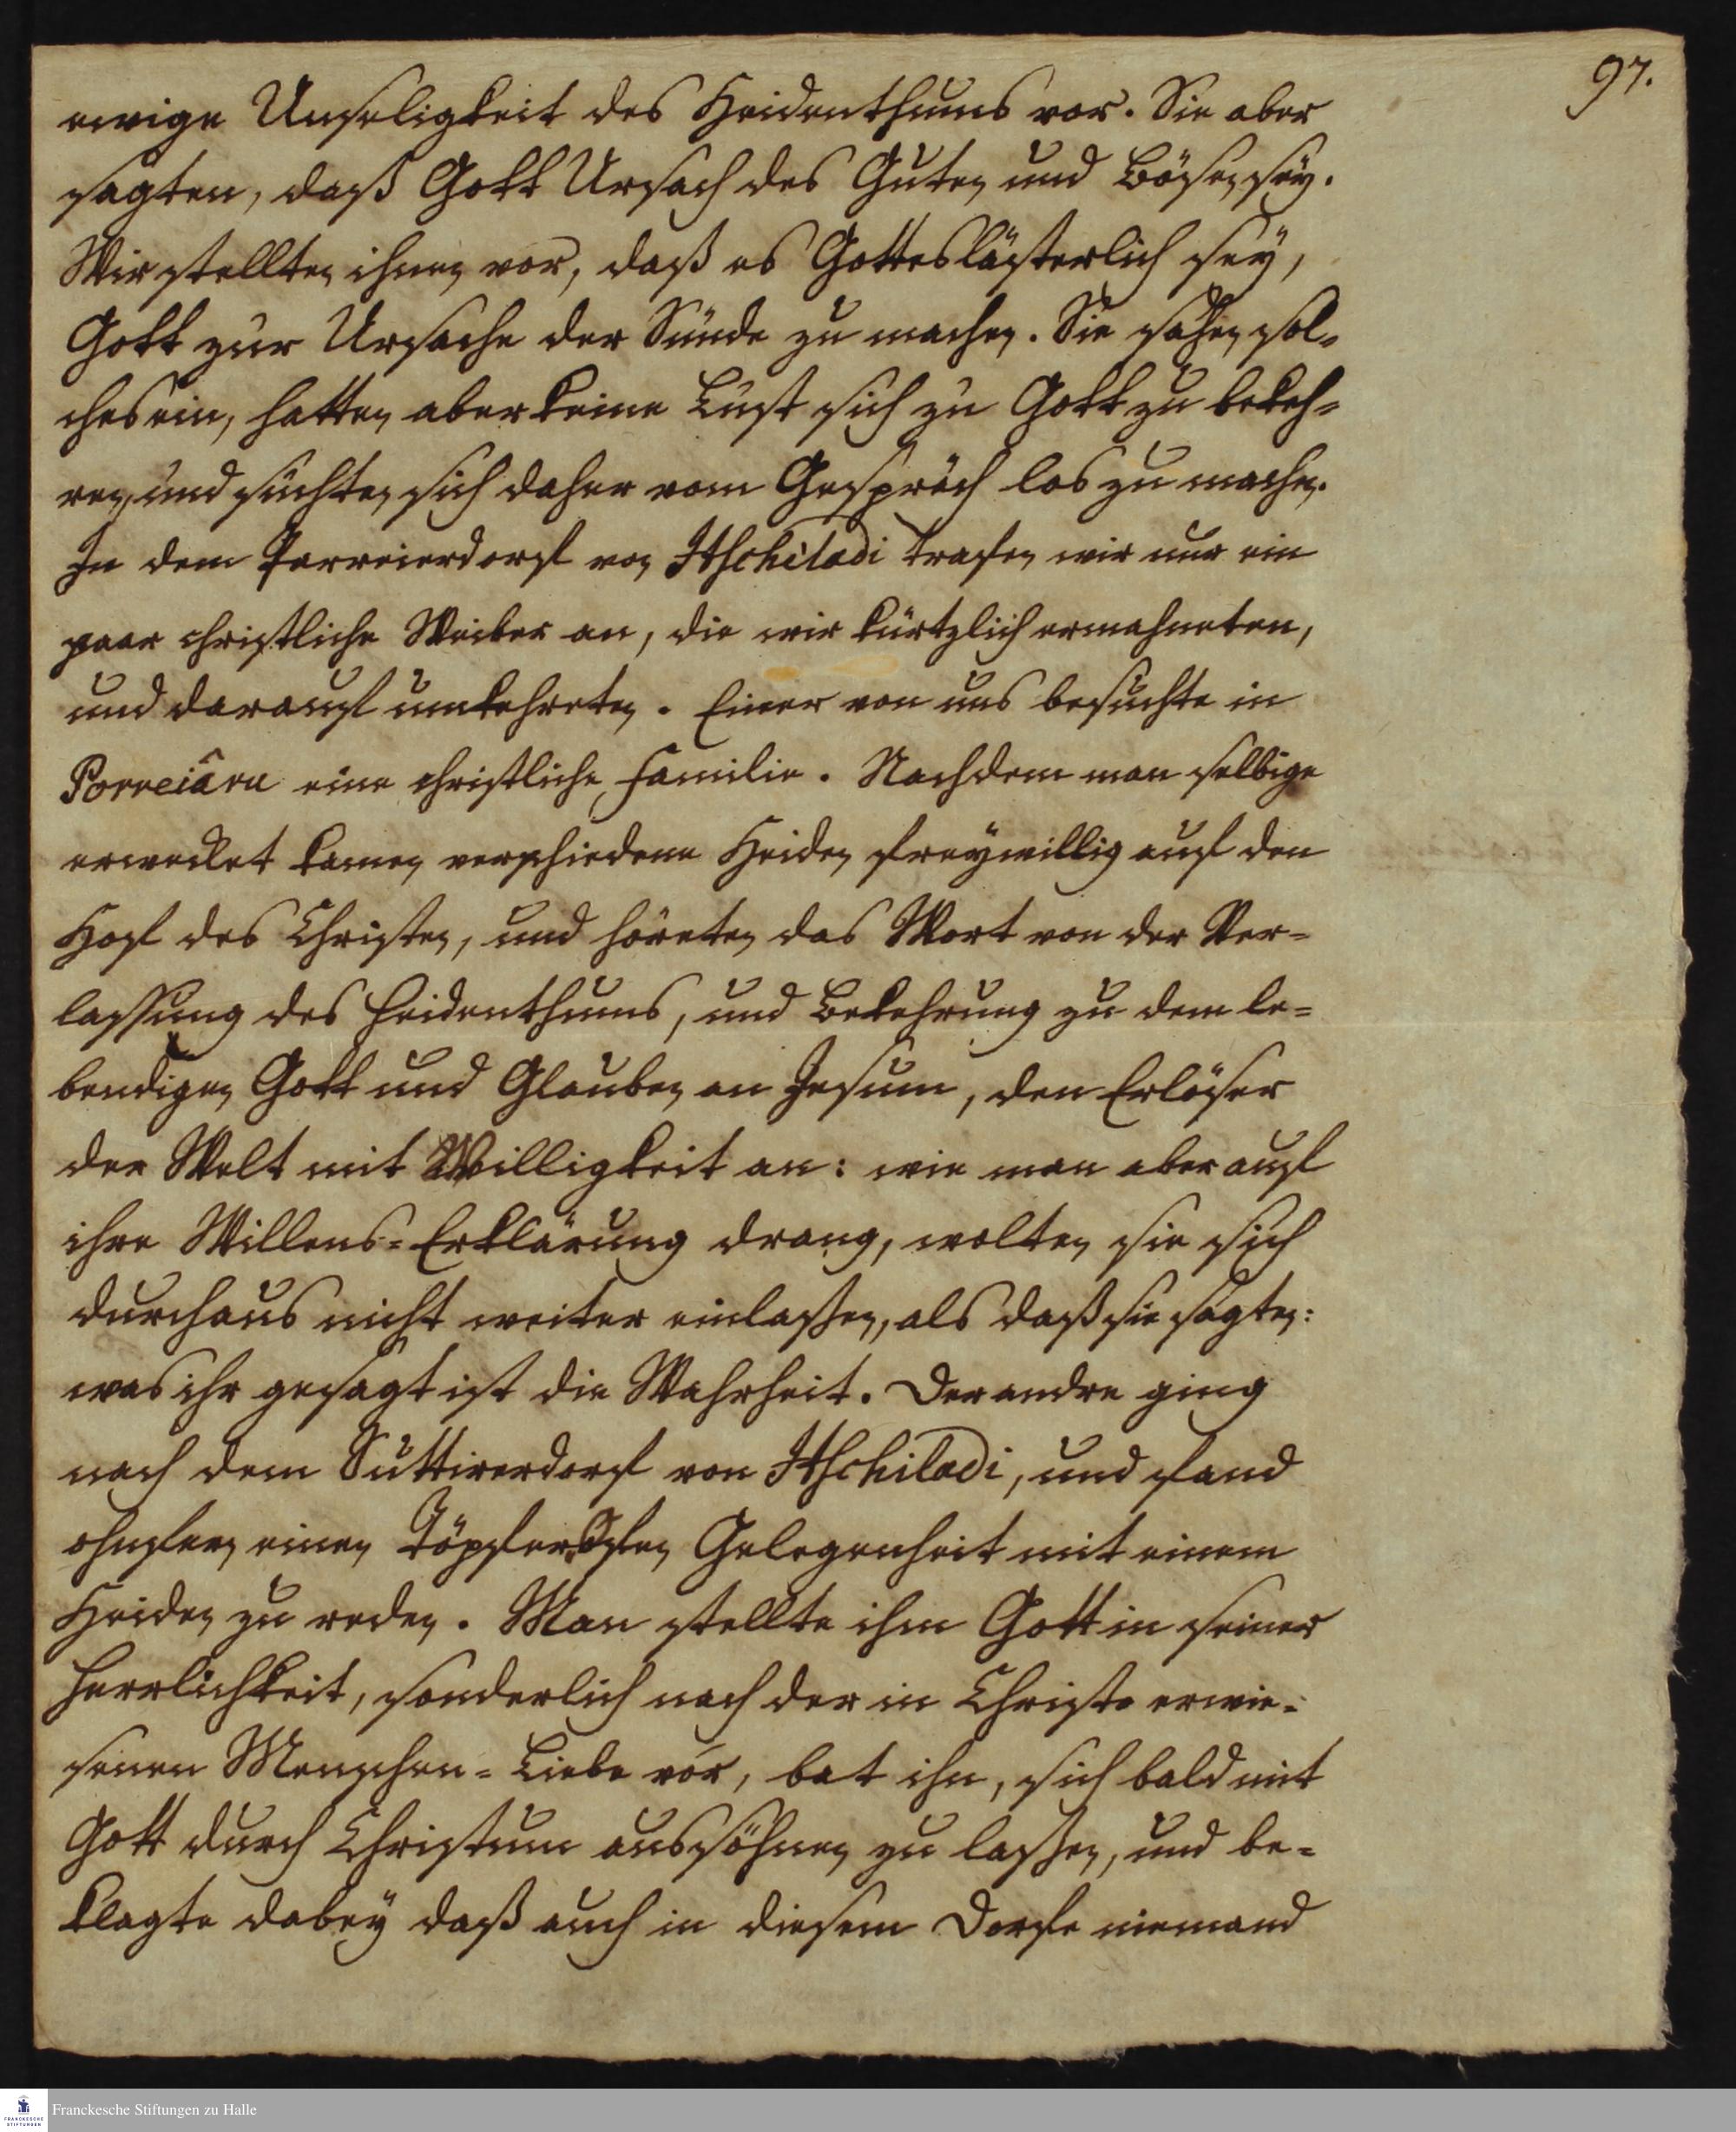 97.
ewige Unseligkeit des Heidenthums vor. Sie aber
sagten, daß Gott Ursach des Guten und Bösen sey.
Wir stellten ihnen vor, daß es Gotteslästerlich sey,
Gott zur Ursache der Sünde zu machen. Sie sahen sol-
ches ein, hatten aber keine Lust sich zu Gott zu bekeh-
ren, und suchten sich daher vom Gespräch los zu machen.
In dem Parreierdorf von Ittschiladi trafen wir nur ein
paar christliche Weiber an, die wir kürtzlich ermahneten,
und darauf umkehreten. Einer von uns besuchte in
Porreiâru eine christliche Familie. Nachdem man selbige
erwecket kamen verschiedene Heiden freywillig auf den
Hof des Christen, und höreten das Wort von der Ver-
lassung des Heidenthums, und Bekehrung zu dem le-
bendigen Gott und Glauben an Jesum, den Erlöser
der Welt mit Willigkeit an: wie man aber auf
ihre Willens-Erklärung drang, wolten sie sich
durchaus nicht weiter einlaßen, als daß sie sagten:
was ihr gesagt ist die Wahrheit. Der andre ging
nach dem Suttirerdorf von Ittschiladi, und fand
ohnfern einen Töpfer Ofen Gelegenheit mit einem
Heiden zu reden. Man stellte ihm Gott in seiner
Herrlichkeit, sonderlich nach der in Christo erwie-
senen Menschen-Liebe vor, bat ihn, sich bald mit
Gott durch Christum aussöhnen zu laßen, und be-
klagte dabey daß auch in diesem Dorfe niemand
Franckesche Stiftungen zu Halle
FRANCKESCHE
STIFTUNGEN